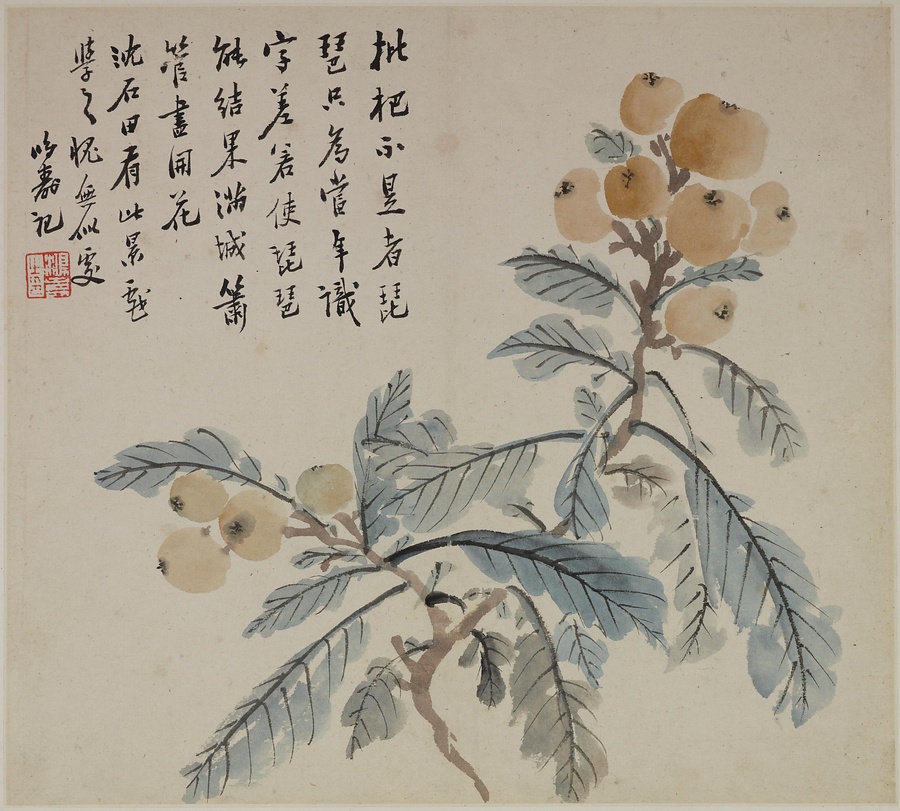 枇杷不是者琵
琶只為當年識
字差若使琵琶
能結果滿城簫
管盡開花
沈石田有此景戲
學之愧無似處
壽記